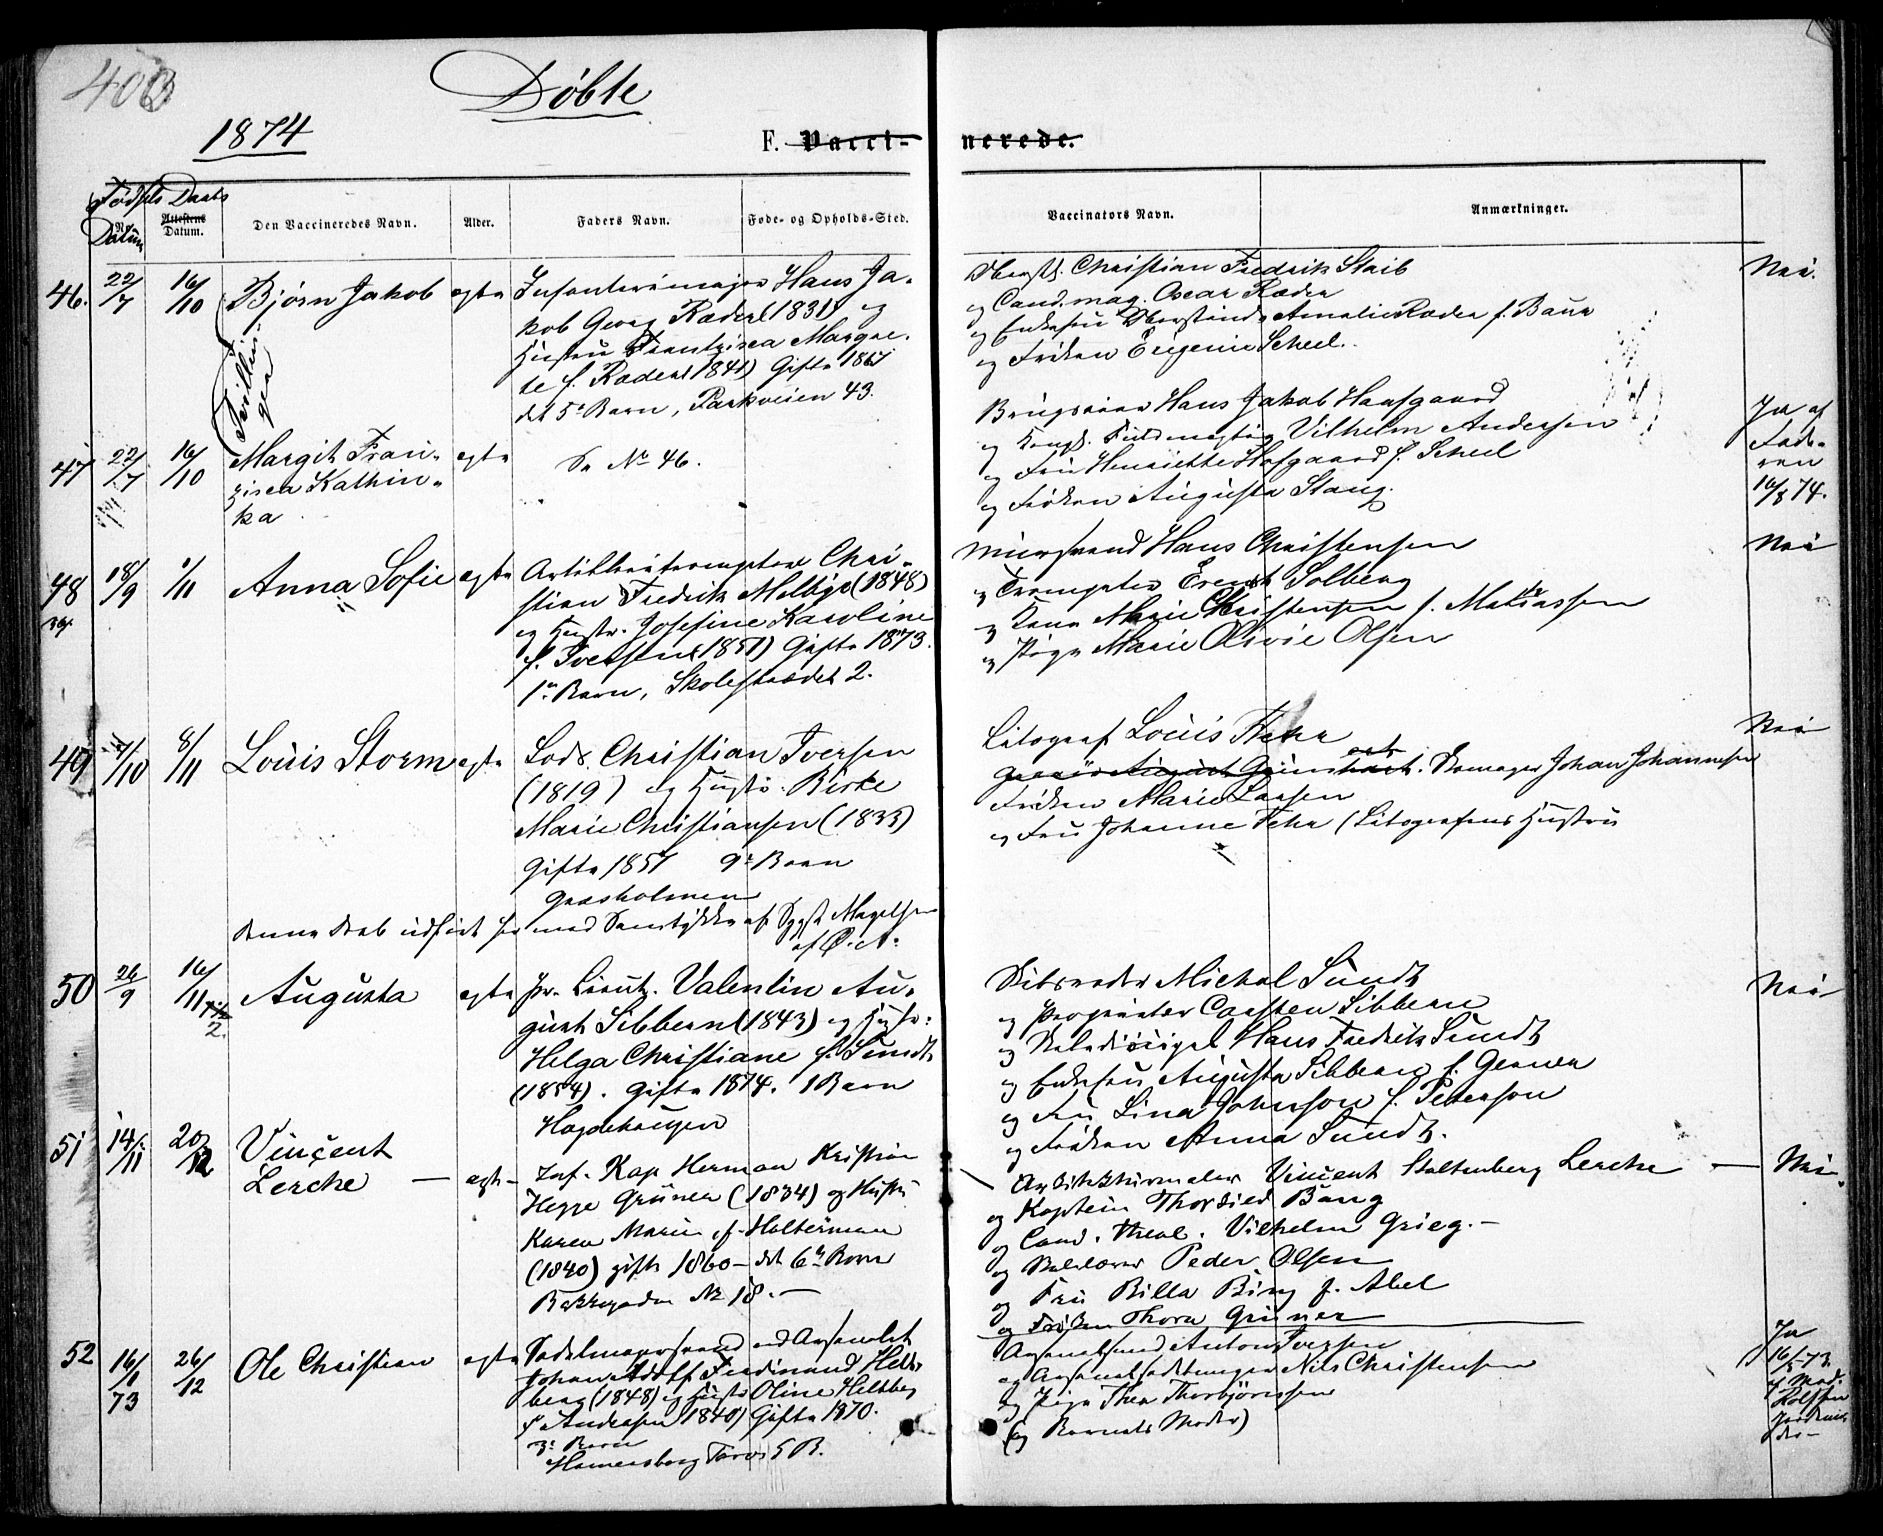 400
Døbte
1874
F. Vacci- nerede.
Fødsels Daabs
Datum
No.
Attestens
Datum.
Den Vaccineredes Navn.
Alder.
Faders Navn.
Føde- og Opholds-Sted.
Vaccinators Navn.
Anmærkninger.
46. 22/7 16/10 Bjørn Jakob ægte
Tvillin-
ger
Infanterimajor Hans Ja-
kob Georg Ræder (1831) og
Hustru Frantzisca Margre-
te f. Ræder (1841) Gifte 1861
det 5te Barn, Parkveien 43.
Christian Fredrik Staib
og Cand. mag. Oscar Ræder
og Enkefru Amalie Ræder f. Baur
og Frøken Eugenie Scheel.
Nei.
47 22/7 16/10 Margit Fran-
zisca Kathin-
ka
ægte
Se No 46.
Brugseier Hans Jakob Hansgaard
og Fuldmægtig Vilhelm Andersen
og Fru Henriette Hofgaard f. Scheel
og Frøken Augusta Stang.
Ja af
Fade-
ren
16/8 74.
48 18/9 1/11 Anna Sofie ægte
Artilleritrompeter Chri-
stian Fredrik Melbye (1848)
og Hustr. Josefine Karoline
f. Iversen (1851) Gifte 1873.
1te Barn, Skolestrædet 2.
Murersvend Hans Christensen
og Trompeter Erensk Solberg
og Kone Marie Christensen f. Matiassen
og Pige Marie Olivie Olsen
Nei
49 /10 8/11 Louis Storm ægte
Lods. Christian Iversen
(1819) og Hustru Birte
Marie Christiansen (1833)
Gifte 1851 9de Barn
Græsholmen
Denne Daab udført her med Samtykke af Sogpr Magelssen
af
Litograf Louis Fehr
Skomager Johan Johannesen
Frøken Marie Larsen
og Fru Johanne Fehr (Litografens Hustru
Nei
50 26/9 16/11 Augusta ægte
Pr. Lieut. Valentin Au-
gust Sibbern (1843) og Hustr:
Helga Christiane f. Sundt
(1854). Gifte 1874. 1 Barn
Hægdehaugen
Michal Sundt
og Proprietær Carsten Sibbern
og Skolediscipel Hans Fredrik Sundt
og Enkefru Augusta Sibbern f. Gerner
og Fru Lina Johnson f. Peterson
og Frøken Anna Sundt.
Nei
51 14/11 20/12 Vinçent
Lerche — ægte
Inf. Kap Herman Kristian
Heppe Grüner (1834) og Hustru
Karen Marie f. Holterman
(1840) gifte 1860 — det 6te Barn
Bakkegaden No 18. —
Arkitekturmaler Vincent Stoltenberg Lerche —
og Kaptein Thorkild Bang
og Cand. theol. Vilhelm Grieg. —
og Peder Olsen
og Fru Billa Bing f. Abel
og Frøken Thora Grüner
Nei
52 16/1 73 26/12 Ole Christian ægte
Sadelmagersvend ved Arsenalet
Johan Adolf Ferdinand Helt-
berg (1848) og Hustr Oline Heltberg
f. Andersen 1848) Gifte 1870.
3de Barn
Hamersborg Torv 5 B.
Arsenalsmed Anton Iversen
og Nils Christensen
og Pige Thea Thorbjörnsen
(og Barnets Moder)
Ja
16/5 73
af Mad.
Holsten